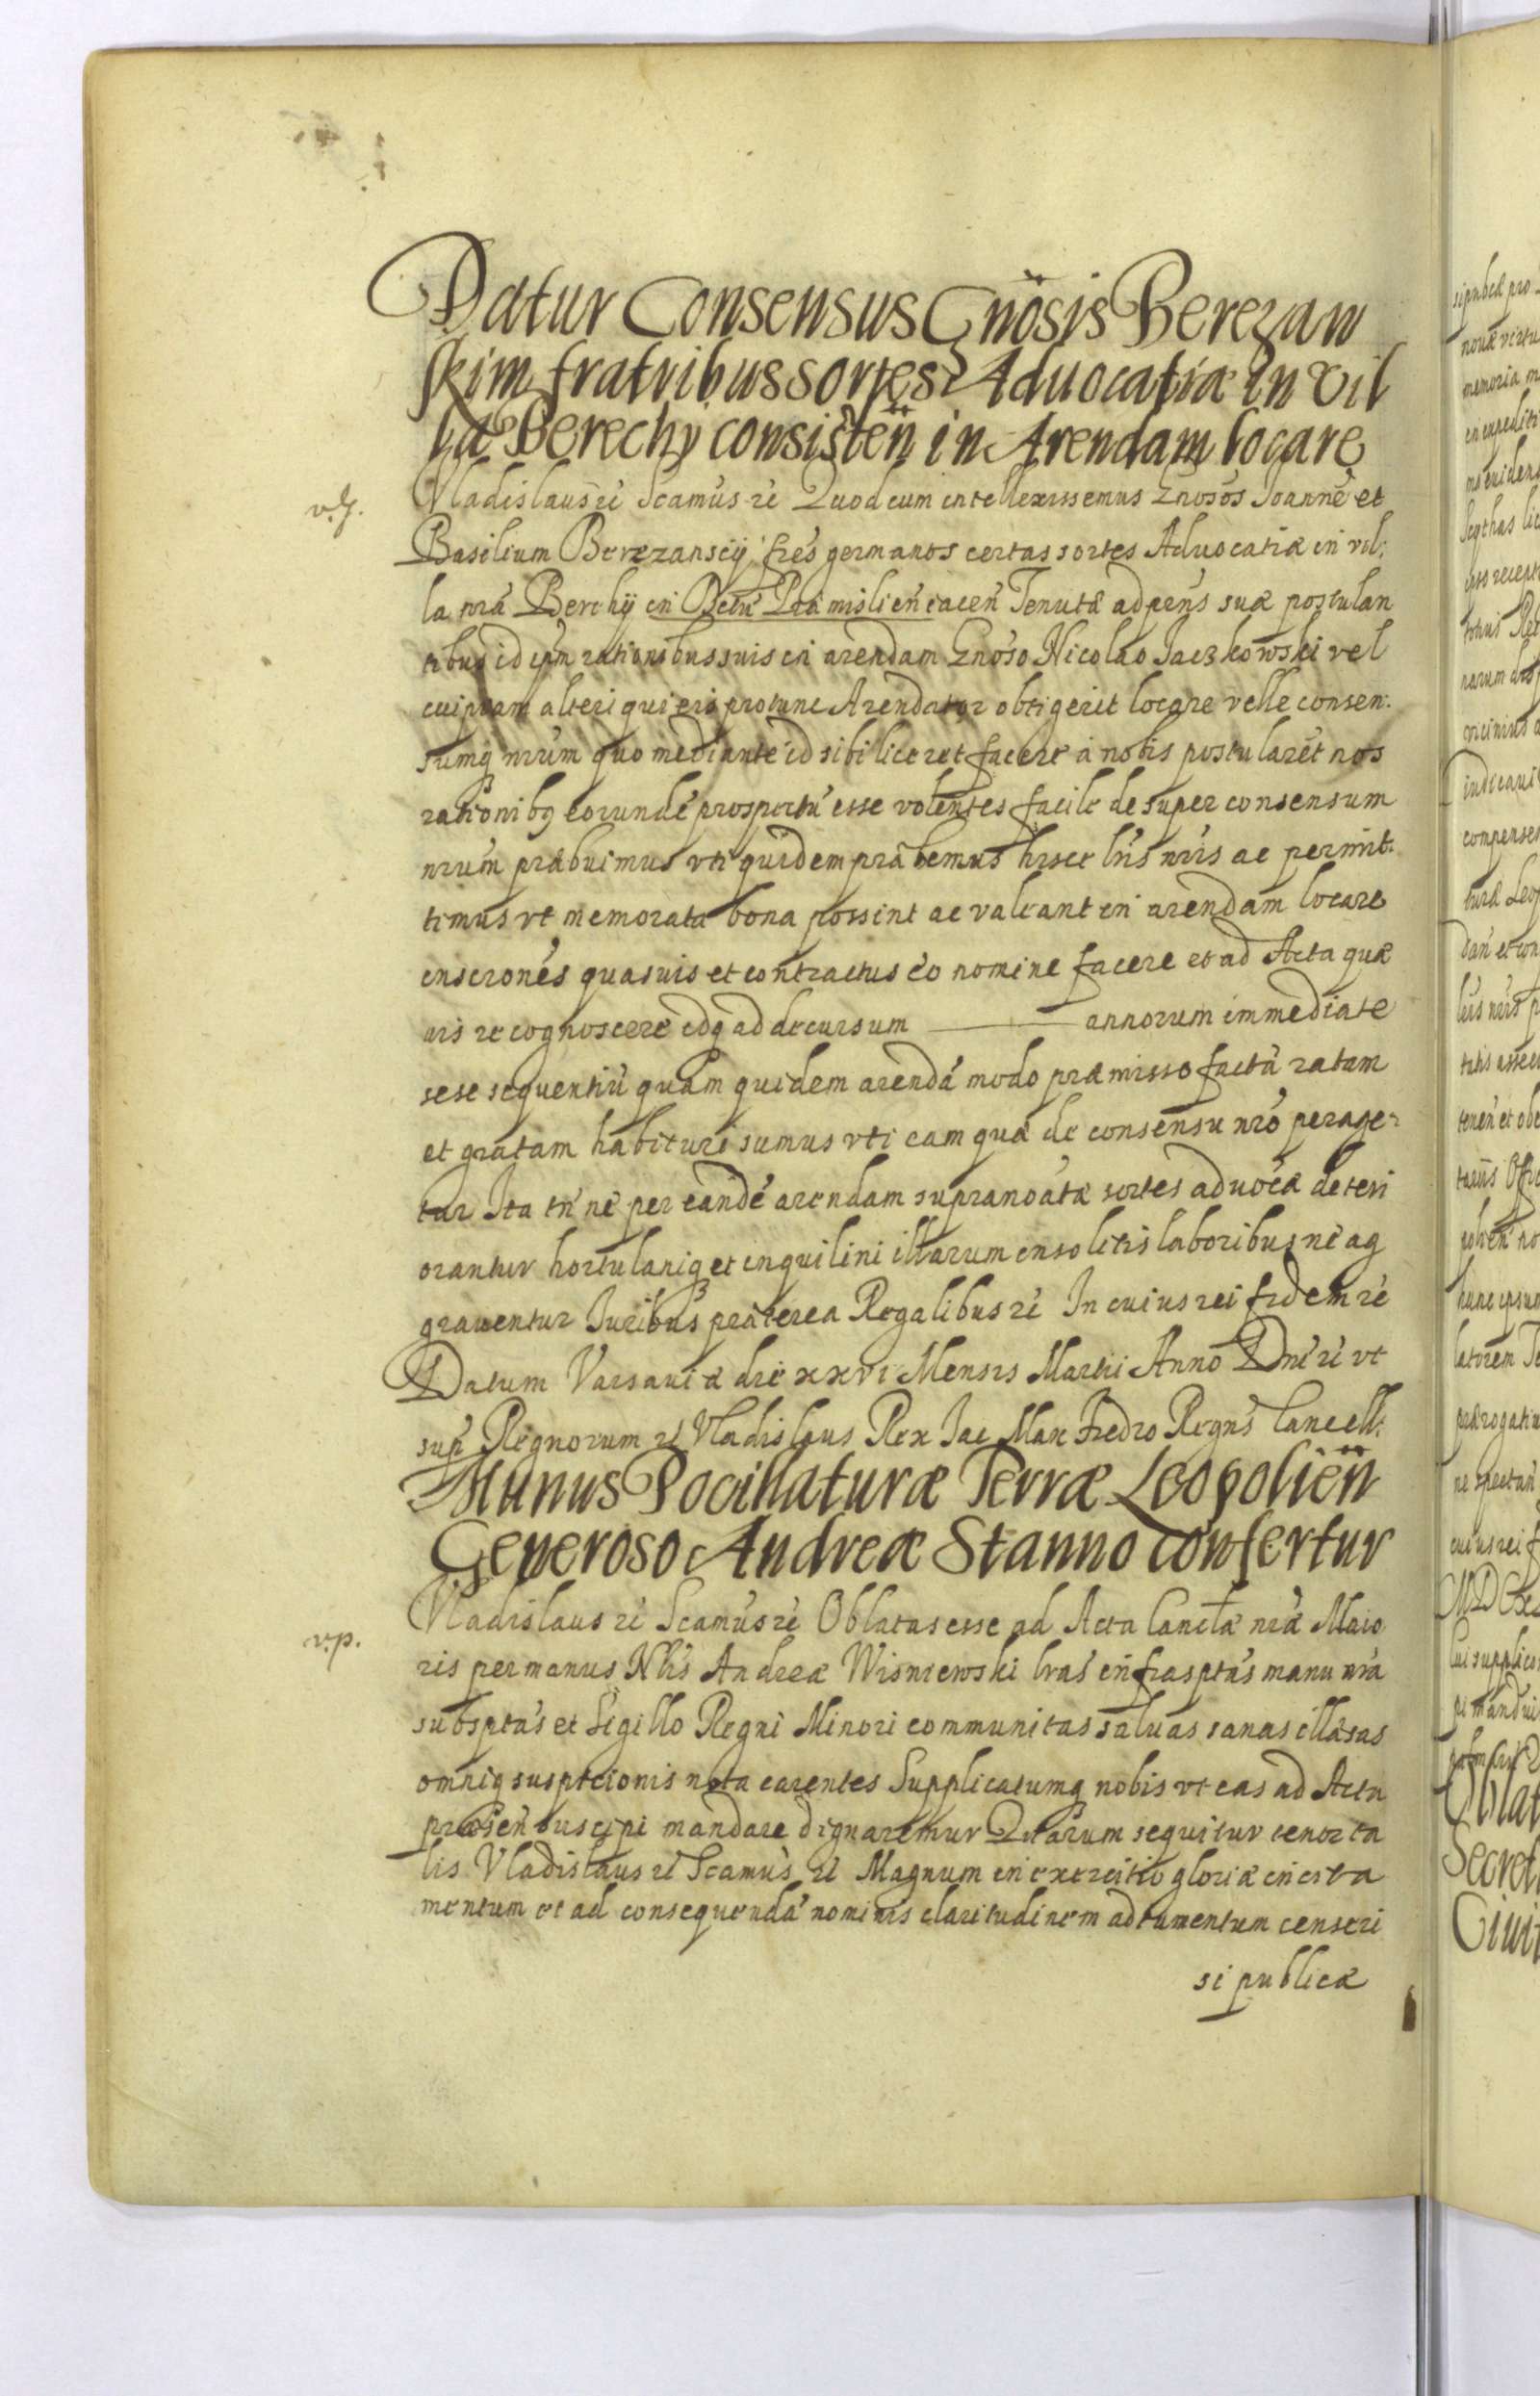 Datur Consensus Gnosis Berezaw
skim fratribus sortes Aduocatiæ in vil
la Berechy consisten in Arendam locare
Vladislaus rc Scamus rc Quod cum intellexissemus Gnosos Joanné et
v.
Basilium Berezanscij fres germanos certas sortes Aduocatiæ in vil,
la nrá Berehy in Premislien iacen Tenutæ ad præns suæ postulan
tibus id ipm rationibus suis in arendam Gnoso Nicolao Jaczkowski vel
cuipiam alteri qui eis pro tunc Arendator obtigerit locare velle consen.
sumq nrum quo mediante id sibi liceret facere à nobis postularet nos
rationibq eorundé prospectú esse volentes facile desuper consensum
nrum præbuimus vti quidem præbemus hisce lris nris ac permit.
timus vt memorata bona possint ac valeant in arendam locare
inscrones quasuis et contractus eo nomine facere et ad Acta quæ
uis recognoscere idq ad decursum ——— annorum immediate
sese sequentiú quam quidem arendá modo præmisso factá ratam
et gratam habituri sumus vti eam quæ de consensu nro perage-
tur Ita tn né per eandé arendam supranoátæ sortes aduocæ deteri
orantur hortulaniq et inquilini illarum insolitis laboribus né ag
grauentur Juribus præterea Regalibus rc In cuius rei fidem rc
Datum Varsauiæ die xxvi Mensis Martii Anno Dni rc vt
sup Regnorum rc Vladislaus Rex Jac Max Fredro Regns Cancell.
Munus Pocillaturæ Terræ Leopolien
Generoso Andreæ Stanno confertur
Vladislaus rc Scamus rc Oblatas esse ad Acta Canctæ nræ Maio
v.p.
ris per manus Nlis Andreæ Wisniewski lras infrasptas manu nrá
subsptas et Sigillo Regni Minori communitas saluas sanas illæsas
omniq suspicionis nota carentes Supplicatumq nobis vt eas ad Acta
præsen suscipi mandare dignaremur Qrarum sequitur tenor ta
lis Vladislaus rc Scamus rc Magnum in exercitio gloriæ incita
mentum et ad consequendá nominis claritudinem adiumentum censeri
si publicæ